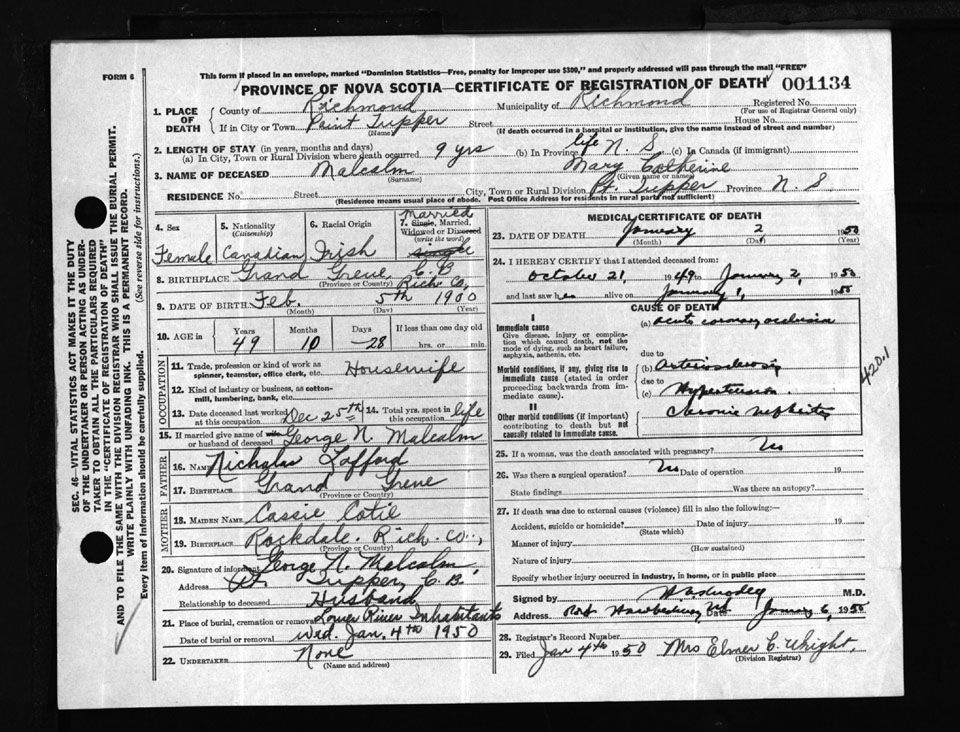 FORM 6
This form if placed in an envelope, marked "Dominion Statistics—Free, penalty for improper use $300," and properly addressed will pass through the mail "FREE"
PROVINCE OF NOVA SCOTIA—CERTIFICATE OF REGISTRATION OF DEATH 001134
1. PLACE OF DEATH
County of Richmond Municipality of Richmond Registered No.
(For use of Registrar General only)
If in City or Town Point Tupper Street House No.
(Name) (If death occurred in a hospital or institution, give the name instead of street and number)
2. LENGTH OF STAY (in years, months and days)
(a) In City, Town or Rural Division where death occurred 9 yrs (b) In Province life N. S (c) In Canada (if immigrant)
3. NAME OF DECEASED Malcolm Mary Catherine
(Surname) (Given name or names)
RESIDENCE No. Street City, Town or Rural Division Pt. Tupper Province N. S
(Residence means usual place of abode. Post Office Address for residents in rural parts not sufficient)
4. Sex
Female
5. Nationality
(Citizenship)
Canadian
6. Racial Origin
Irish
Married
7. Single, Married, Widowed or Divorced
(write the word)
single
8. BIRTHPLACE Grand Greve, C. B
(Province or Country) Rich Co,
9. DATE OF BIRTH Feb. 5th 1900
(Month) (Day) (Year)
10. AGE in Years Months Days If less than one day old
49 10 28 hrs. or min.
OCCUPATION
11. Trade, profession or kind of work as spinner, teamster, office clerk, etc. Housewife
12. Kind of industry or business, as cotton-mill, lumbering, bank, etc.
13. Date deceased last worked at this occupation Dec 25th 14. Total yrs. spent in this occupation life
15. If married give name of wife or husband of deceased George N. Malcolm
FATHER
16. NAME Nicholas Lafford
17. BIRTHPLACE Grand Greve
(Province or Country)
MOTHER
18. MAIDEN NAME Cassie Cotie
19. BIRTHPLACE Rockdale. Rich. Co.,
(Province or Country)
20. Signature of informant George N. Malcolm
Address Pt. Tupper, C. B.
Relationship to deceased Husband
21. Place of burial, cremation or removal Lower River Inhabitants
Date of burial or removal Wed. Jan. 4th 1950
22. UNDERTAKER None
(Name and address)
MEDICAL CERTIFICATE OF DEATH
23. DATE OF DEATH January 2 1950
(Month) (Day) (Year)
24. I HEREBY CERTIFY that I attended deceased from:
October 21, 1949 to January 2, 1950
and last saw her alive on January 1, 1950
CAUSE OF DEATH
I
Immediate cause
Give disease, injury or complication which caused death, not the mode of dying, such as heart failure, asphyxia, asthenia, etc.
(a) acute coronary occlusion
due to
Morbid conditions, if any, giving rise to immediate cause (stated in order proceeding backwards from immediate cause).
(b) Arteriosclerosis
due to
(c) Hypertension
II
Other morbid conditions (if important) contributing to death but not causally related to immediate cause.
Chronic nephritis
420.1
25. If a woman, was the death associated with pregnancy? No
26. Was there a surgical operation? No Date of operation 19
State findings Was there an autopsy?
27. If death was due to external causes (violence) fill in also the following:—
Accident, suicide or homicide? Date of injury 19
(State which)
Manner of injury
(How sustained)
Nature of injury
Specify whether injury occurred in industry, in home, or in public place
Signed by M.D.
Address Port Hawkesbury NS Date January 6, 1950
28. Registrar's Record Number
29. Filed Jan 4th 1950 Mrs Elmer C. Wright,
(Division Registrar)
SEC. 46—VITAL STATISTICS ACT MAKES IT THE DUTY
OF THE UNDERTAKER OR PERSON ACTING AS UNDER-
TAKER TO OBTAIN ALL THE PARTICULARS REQUIRED
IN THE "CERTIFICATE OF REGISTRATION OF DEATH"
AND TO FILE THE SAME WITH THE DIVISION REGISTRAR WHO SHALL ISSUE THE BURIAL PERMIT.
WRITE PLAINLY WITH UNFADING INK. THIS IS A PERMANENT RECORD.
Every item of information should be carefully supplied. (See reverse side for instructions.)